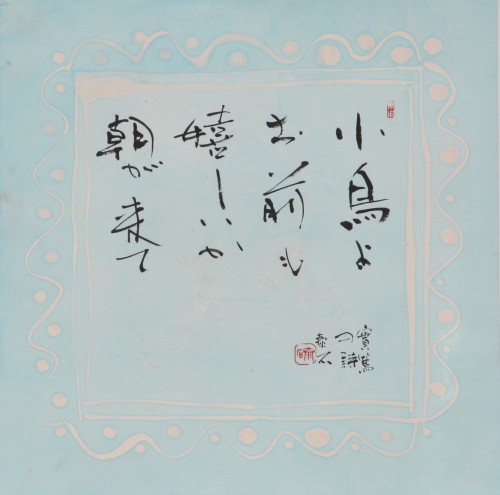 小鳥よ
お前も
嬉しいか
朝が来て
實篤
の詩
泰石